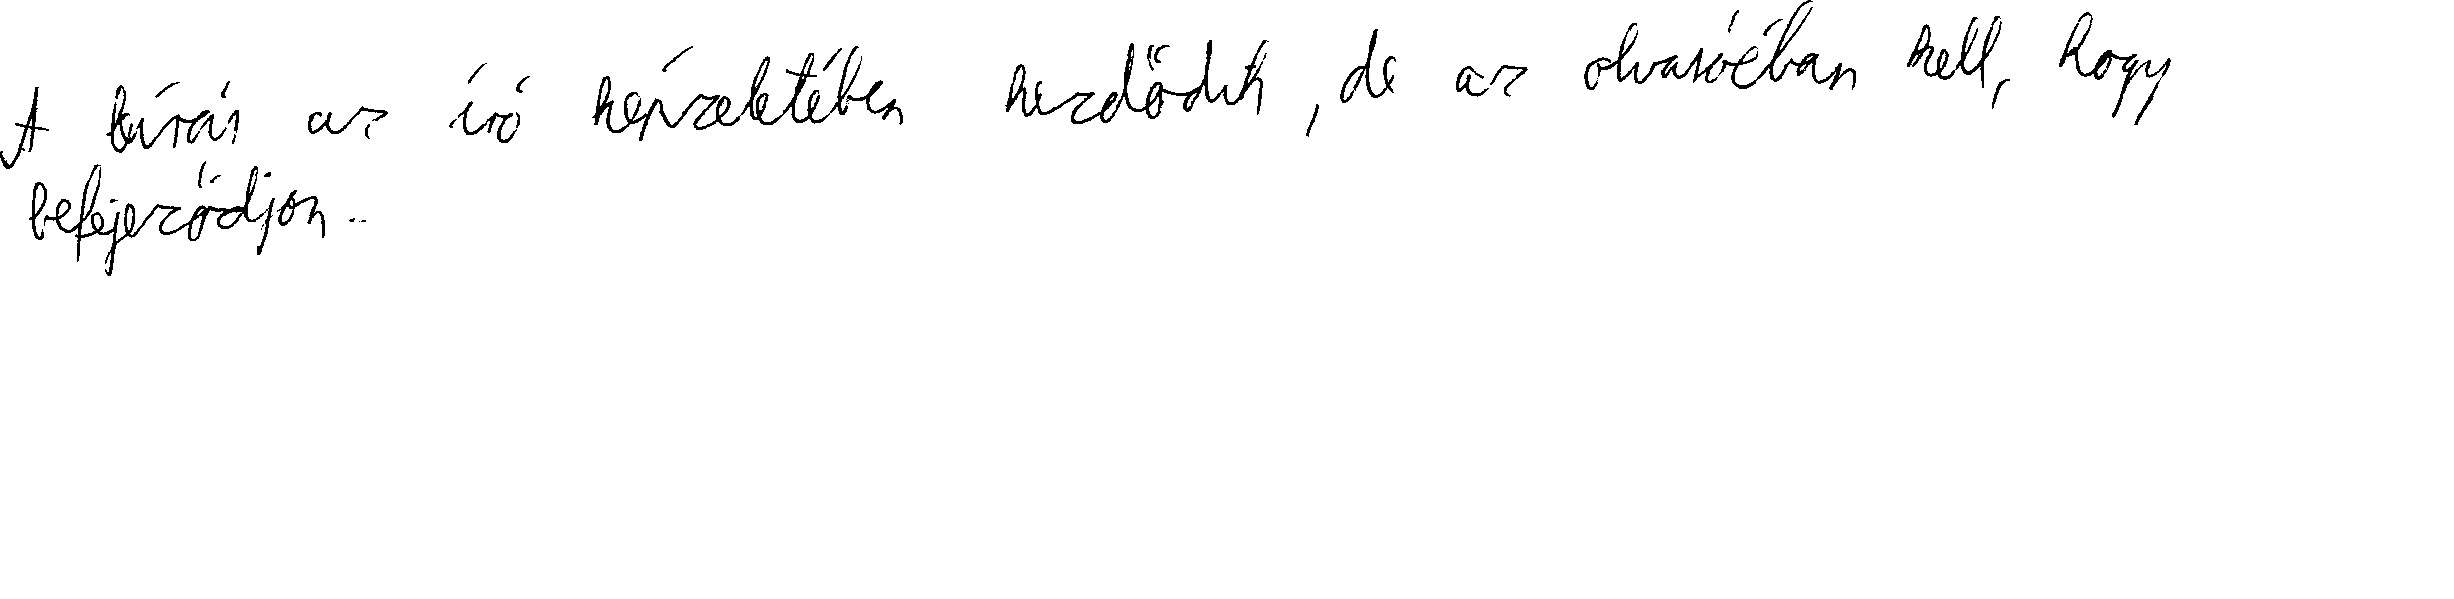 A leírás az író képzeletében kezdődik, de az olvasóéban kell, hogy
befejeződjön..